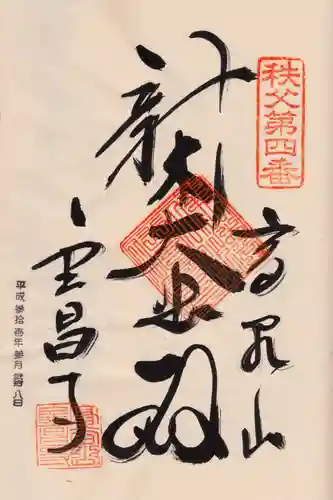 秩父第四番
高谷山
新木大悲殿
金昌寺
平成参拾壱年参月 八日